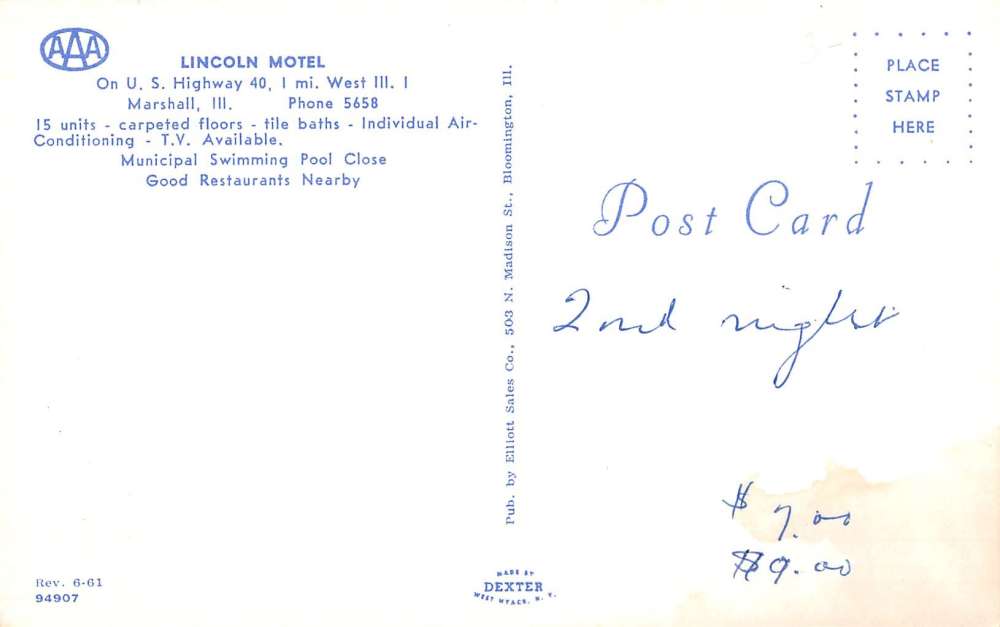 AAA
LINCOLN MOTEL
On U. S. Highway 40, 1 mi. West Ill. 1
Marshall, Ill. Phone 5658
15 units - carpeted floors - tile baths - Individual Air-
Conditioning - T.V. Available.
Municipal Swimming Pool Close
Good Restaurants Nearby
Rev. 6-61
94907
Pub. by Elliott Sales Co., 503 N. Madison St., Bloomington, Ill.
MADE BY
DEXTER
WEST NYACK, N. Y.
PLACE
STAMP
HERE
Post Card
2nd night
$ 7.00
$9.00